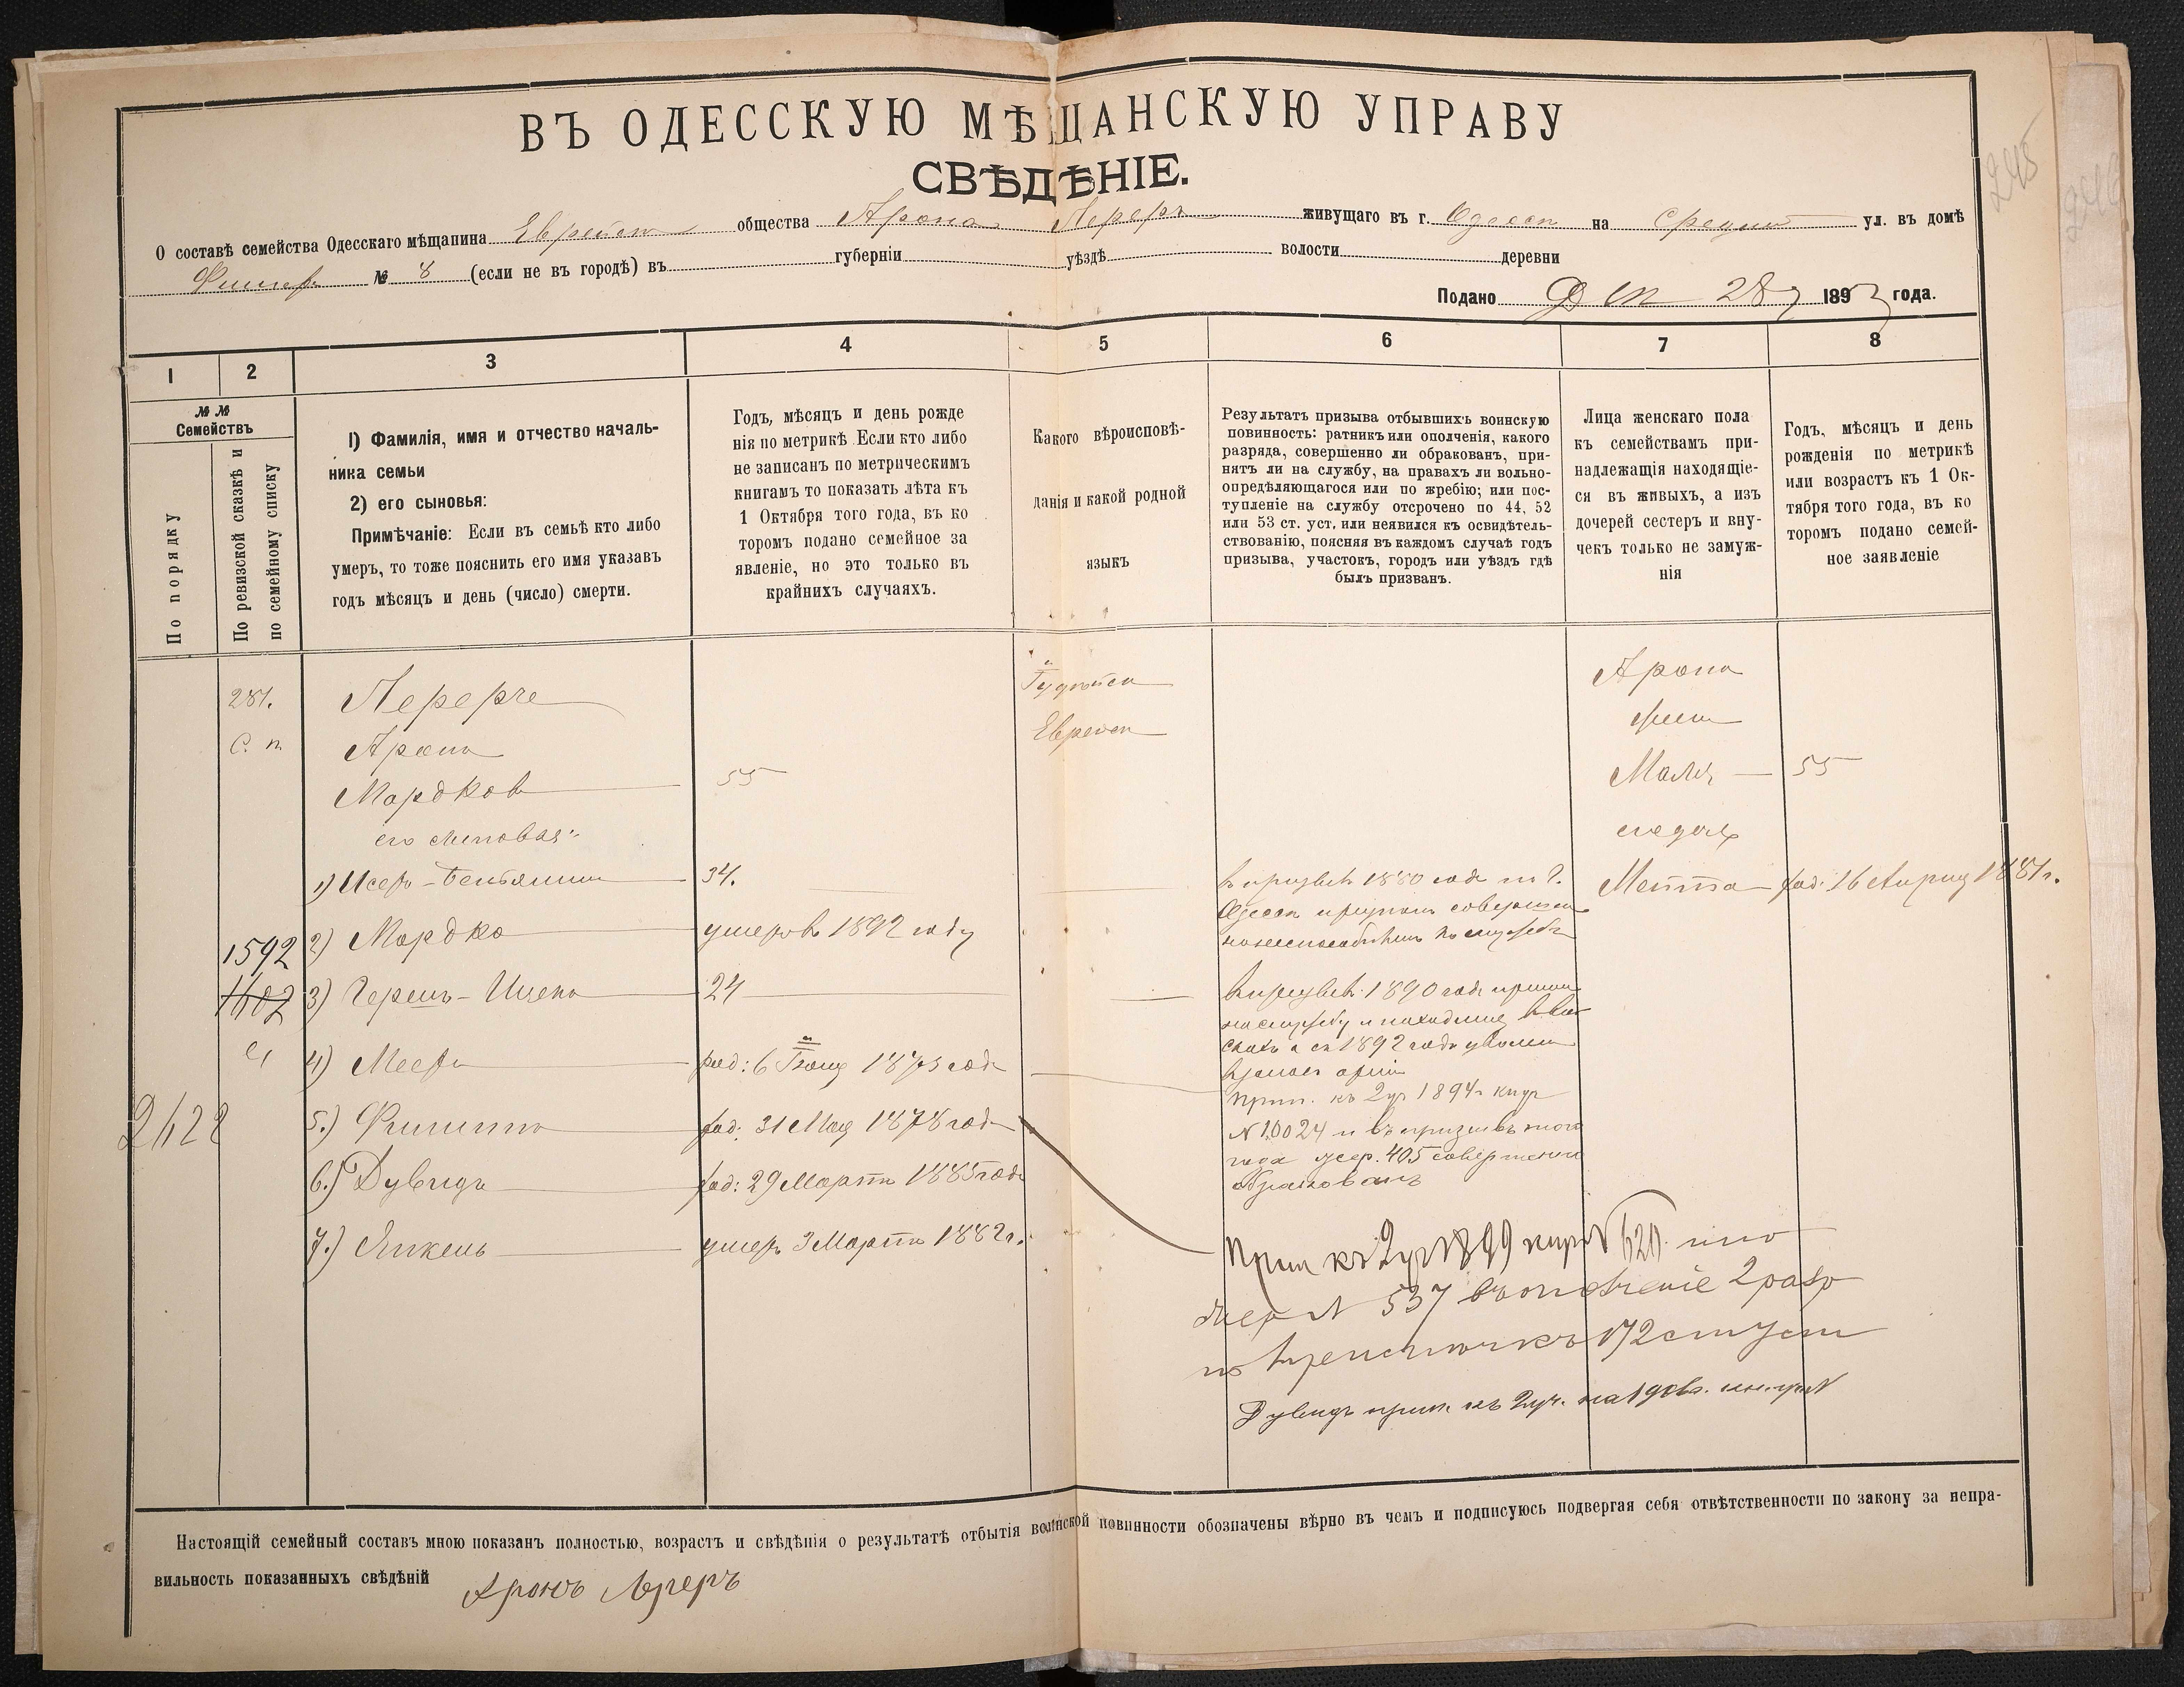 ВЪ ОДЕССКУЮ МѢЩАНСКУЮ УПРАВУ
СВѢДѢНІЕ.
О составѣ семейства Одесскаго мѣщанина Еврейск общества Арона Лереръ живущаго въ г. Одессѣ на Средней ул. въ домѣ
Фишеръ № 8 (если не въ городѣ) въ губерніи уѣздѣ волости деревни
Подано Дек 28 1893 года.
1 2 3 4 5 6 7 8
№№
Семействъ
По порядку
По ревизской сказкѣ и
по семейному списку
1) Фамилія, имя и отчество началь-
ника семьи
2) его сыновья:
Примѣчаніе: Если въ семьѣ кто либо
умеръ, то тоже пояснить его имя указавъ
годъ мѣсяцъ и день (число) смерти.
Годъ, мѣсяцъ и день рожде
нія по метрикѣ Если кто либо
не записанъ по метрическимъ
книгамъ то показать лѣта къ
1 Октября того года, въ ко
торомъ подано семейное за
явленіе, но это только въ
крайнихъ случаяхъ.
Какого вѣроисповѣ-
данія и какой родной
языкъ
Результатъ призыва отбывшихъ воинскую
повинность: ратникъ или ополченія, какого
разряда, совершенно ли обракованъ, при-
нятъ ли на службу, на правахъ ли вольно-
опредѣляющагося или по жребію; или пос-
тупленіе на службу отсрочено по 44, 52
или 53 ст. уст. или неявился къ освидѣтель-
ствованію, поясняя въ каждомъ случаѣ годъ
призыва, участокъ, городъ или уѣздъ гдѣ
былъ призванъ.
Лица женскаго пола
къ семействамъ при-
надлежащія находящіе-
ся въ живыхъ, а изъ
дочерей сестеръ и вну-
чекъ только не замуж-
нія
Годъ, мѣсяцъ и день
рожденія по метрикѣ
или возрастъ къ 1 Ок-
тября того года, въ ко
торомъ подано семей-
ное заявленіе
281. Лереръ Іудейск Арона
С. п. Аронъ Еврейск жена
Мордковъ 55 Маля 55
его сыновья:
1) Исеръ-Беньяминъ 34. въ призывѣ 1880 года по г. Метта род: 16 Апрѣля 1881 г.
Одессѣ признанъ совершен
1592 2) Мордко умеръ въ 1892 году неспособнымъ къ службѣ
1602 3) Гершъ-Ицекъ 24 въ призывѣ 1890 года принятъ
на службу и находился
съ 1892 года уволенъ
4) Мееръ род: 6 Іюня 1873 года
прип. къ 2 уч 1894 г
2122 5.) Фишель род: 31 Мая 1878 года № 10024 и въ призывѣ того
года жер. 405 совершенно
6.) Дувидъ род: 29 Марта 1885 года обракованъ
7.) Янкель умеръ 3 Марта 1882 г. Прип къ 2 уч 1899 № 620
жер № 537 въ ополченіе 2 разр
172 ст Уст
Дувидъ прип. къ 2 уч. на 190
Настоящій семейный составъ мною показанъ полностью, возрастъ и свѣдѣнія о результатѣ отбытія воинской повинности обозначены вѣрно въ чемъ и подписуюсь подвергая себя отвѣтственности по закону за непра-
вильность показанныхъ свѣдѣній Аронъ Лереръ
245
246